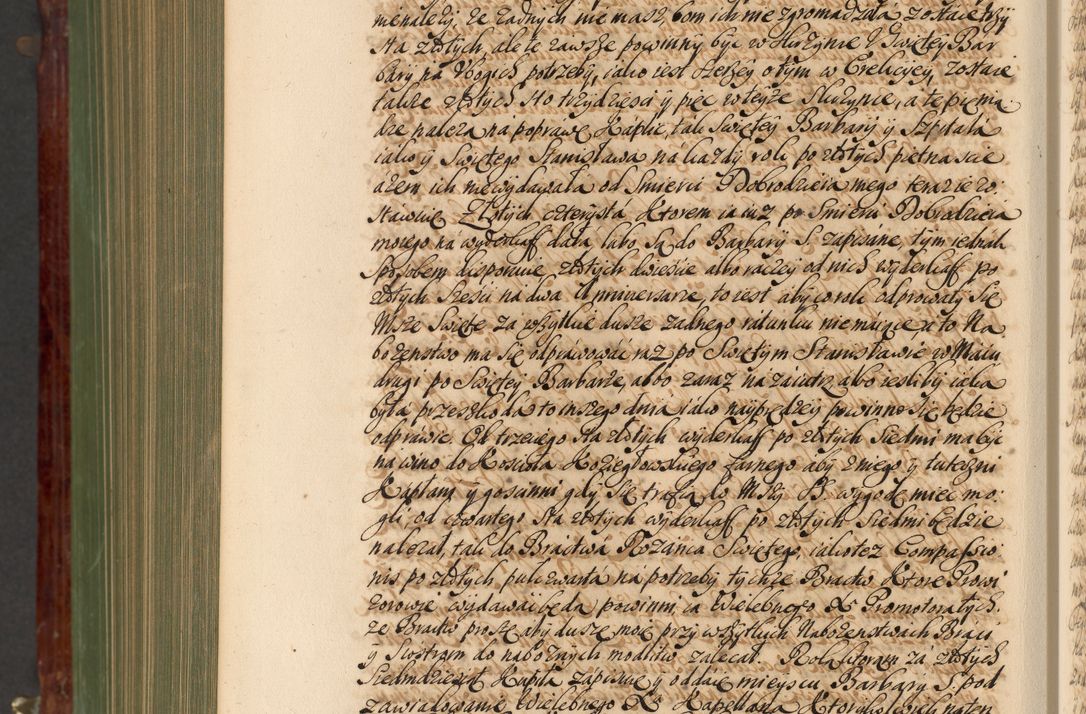 nienależy, że żadnych nie masz, bom ich nie zgromadziła zostaie trzy
sta złotych, ale te zawsze powinny być w Skrzynie u Swiętey Bar
bary na Ubogich potrzeby, iako iest szerzey o tym w Erekcyey, zostaie
także złotych sto trzydziesci y pięc w teyże Skrzynie, a te pienią
dze należa na poprawę Kaplic, tak Swiętey Barbary y Szpitala
iako y Swiętego Stanisława na każdy rok po złotych piętnascie
ażem ich nie wydawała od Smierci Dobrodzieia mego teraz ie zo
stawuię Złotych czterysta Ktorem ia iuż po Smierci Dobrodzieia
moiego na wyderkaff dała, labo są do Barbary S. zapisane, tym iednak
Sposobem disponuię złotych dwieście albo raczey od nich wyderkaff po
złotych sześci na dwa Anniversarze, to iest aby co rok odprawiały się
Msze Swięte za wszytkie dusze żadnego ratunku nie maiące a to Na
bożenstwo ma się odprawować raz po Swiętym Stanisławie w Maiu
drugi po Swiętey Barbarze, albo zaraz nazaiutrz albo iesliby iaka
była przeszkoda to inszego dnia iako nayprędzey powinno się będzie
odprawic. Od trzeciego sta złotych wyderkaff po złotych siedmi ma byc
na wino do Kosciola Koziegłowskiego farnego aby z niego y tuteczni
Kapłani y goscinni gdy się trafią do Mszy S. wygodę miec mo:
gli, od czwartego sta złotych wyderkaff po złotych siedmi będzie
należał, tak do Bractwa Rożanca Swiętego, iako też Compassio
nis po złotych pułczwarta na potrzeby tychże Bractw Ktore Prowi
zorowie wydawać będą powinni, ia Wielebnego X. Promotora tych:
że Bractw proszę aby duszę moię przy wszytkich Nabożenstwach Braci
y Siostrom do nabożnych modlitw zalecał. Rolą ktoram za złotych
Siedmdziesiąt Kapiła zapisuię y oddaię mieyscu Barbary S. pod
zawiadowanie Wielebnego X. Kapellana